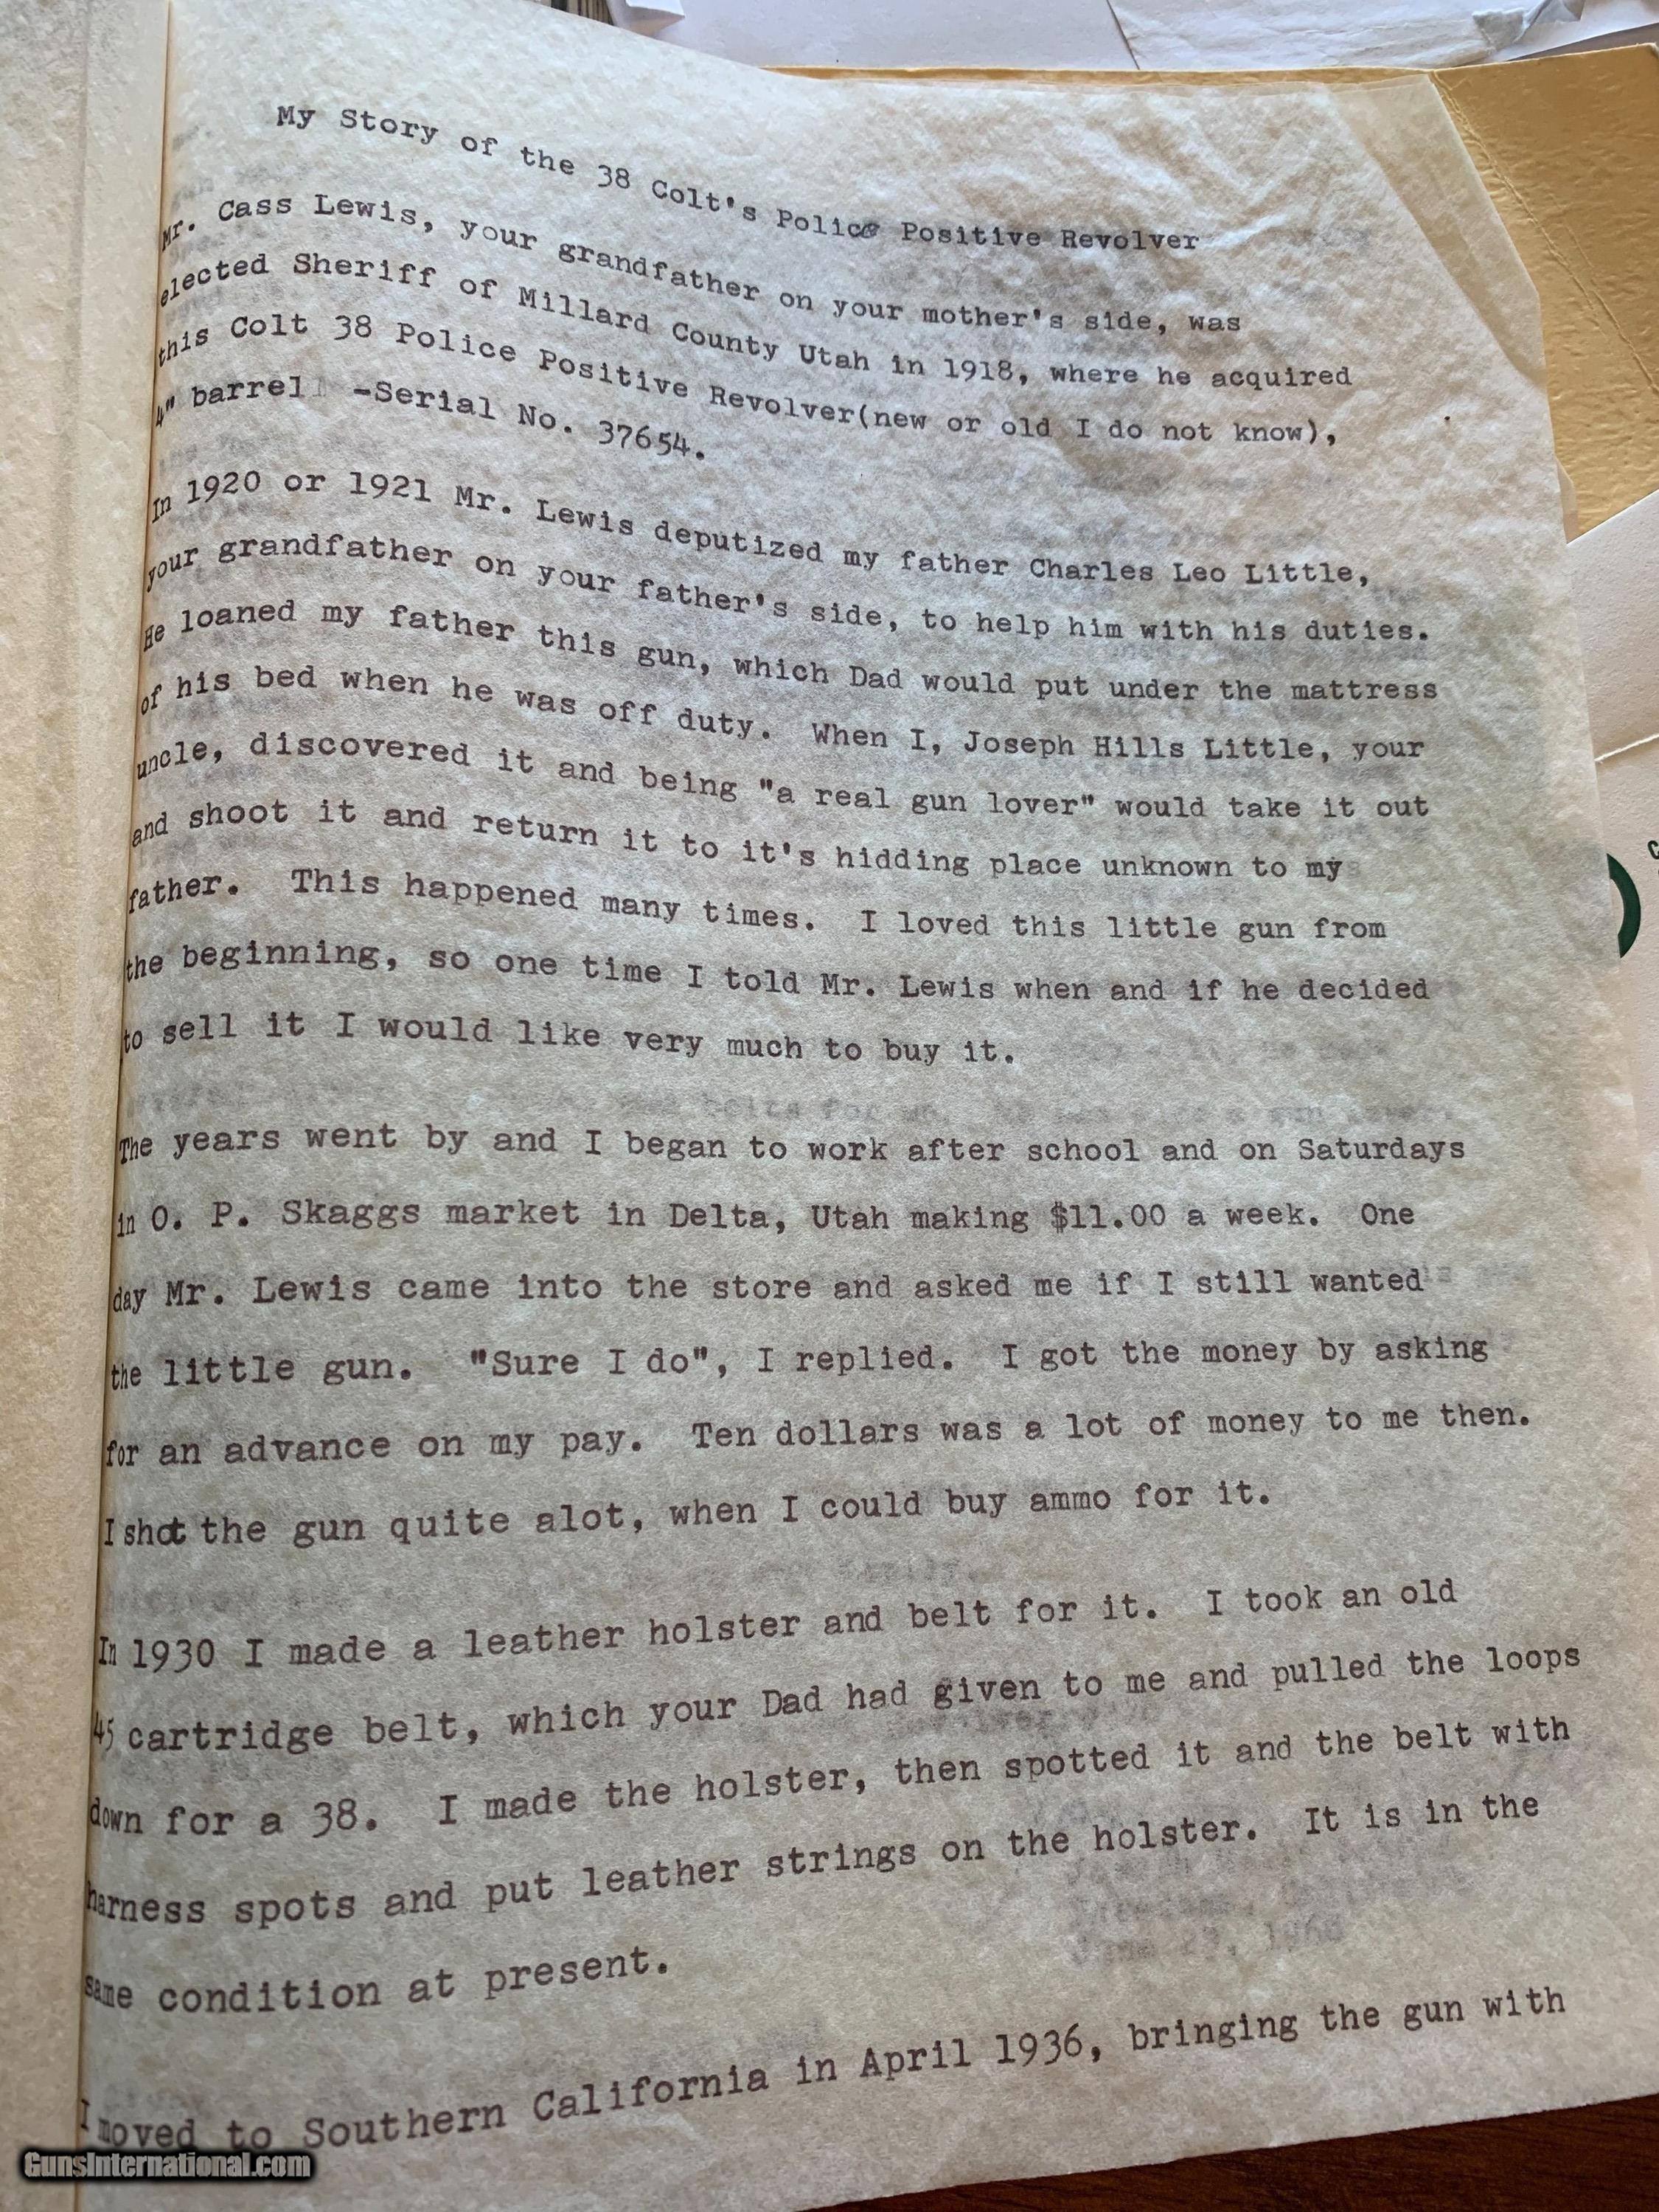 My Story of the 38 Colt's Police Positive Revolver
Mr. Cass Lewis, your grandfather on your mother's side, was
elected Sheriff of Millard County Utah in 1918, where he acquired
this Colt 38 Police Positive Revolver(new or old I do not know),
4" barrel -Serial No. 37654.
In 1920 or 1921 Mr. Lewis deputized my father Charles Leo Little,
your grandfather on your father's side, to help him with his duties.
He loaned my father this gun, which Dad would put under the mattress
of his bed when he was off duty. When I, Joseph Hills Little, your
uncle, discovered it and being "a real gun lover" would take it out
and shoot it and return it to it's hidding place unknown to my
father. This happened many times. I loved this little gun from
the beginning, so one time I told Mr. Lewis when and if he decided
to sell it I would like very much to buy it.
The years went by and I began to work after school and on Saturdays
in O. P. Skaggs market in Delta, Utah making $11.00 a week. One
day Mr. Lewis came into the store and asked me if I still wanted
the little gun. "Sure I do", I replied. I got the money by asking
for an advance on my pay. Ten dollars was a lot of money to me then.
I shot the gun quite alot, when I could buy ammo for it.
In 1930 I made a leather holster and belt for it. I took an old
45 cartridge belt, which your Dad had given to me and pulled the loops
down for a 38. I made the holster, then spotted it and the belt with
harness spots and put leather strings on the holster. It is in the
same condition at present.
I moved to Southern California in April 1936, bringing the gun with
GunsInternational.com